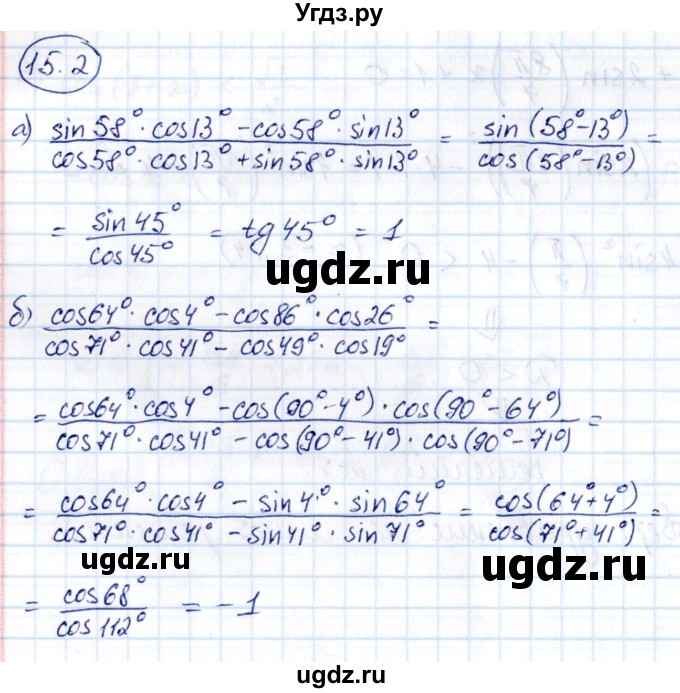 Угдз.ру
15.2
а) (sin58°·cos13° − cos58°·sin13°)/(cos58°·cos13° + sin58°·sin13°) = sin(58°−13°)/cos(58°−13°) =
= sin45°/cos45° = tg45° = 1
ugdz.ru ugdz.ru
б) (cos64°·cos4° − cos86°·cos26°)/(cos71°·cos41° − cos49°·cos19°) =
= (cos64°·cos4° − cos(90°−4°)·cos(90°−64°))/(cos71°·cos41° − cos(90°−41°)·cos(90°−71°)) =
= (cos64°·cos4° − sin4°·sin64°)/(cos71°·cos41° − sin41°·sin71°) = cos(64°+4°)/cos(71°+41°) =
ugdz.ru ugdz.ru
= cos68°/cos112° = −1
ugdz.ru ugdz.ru